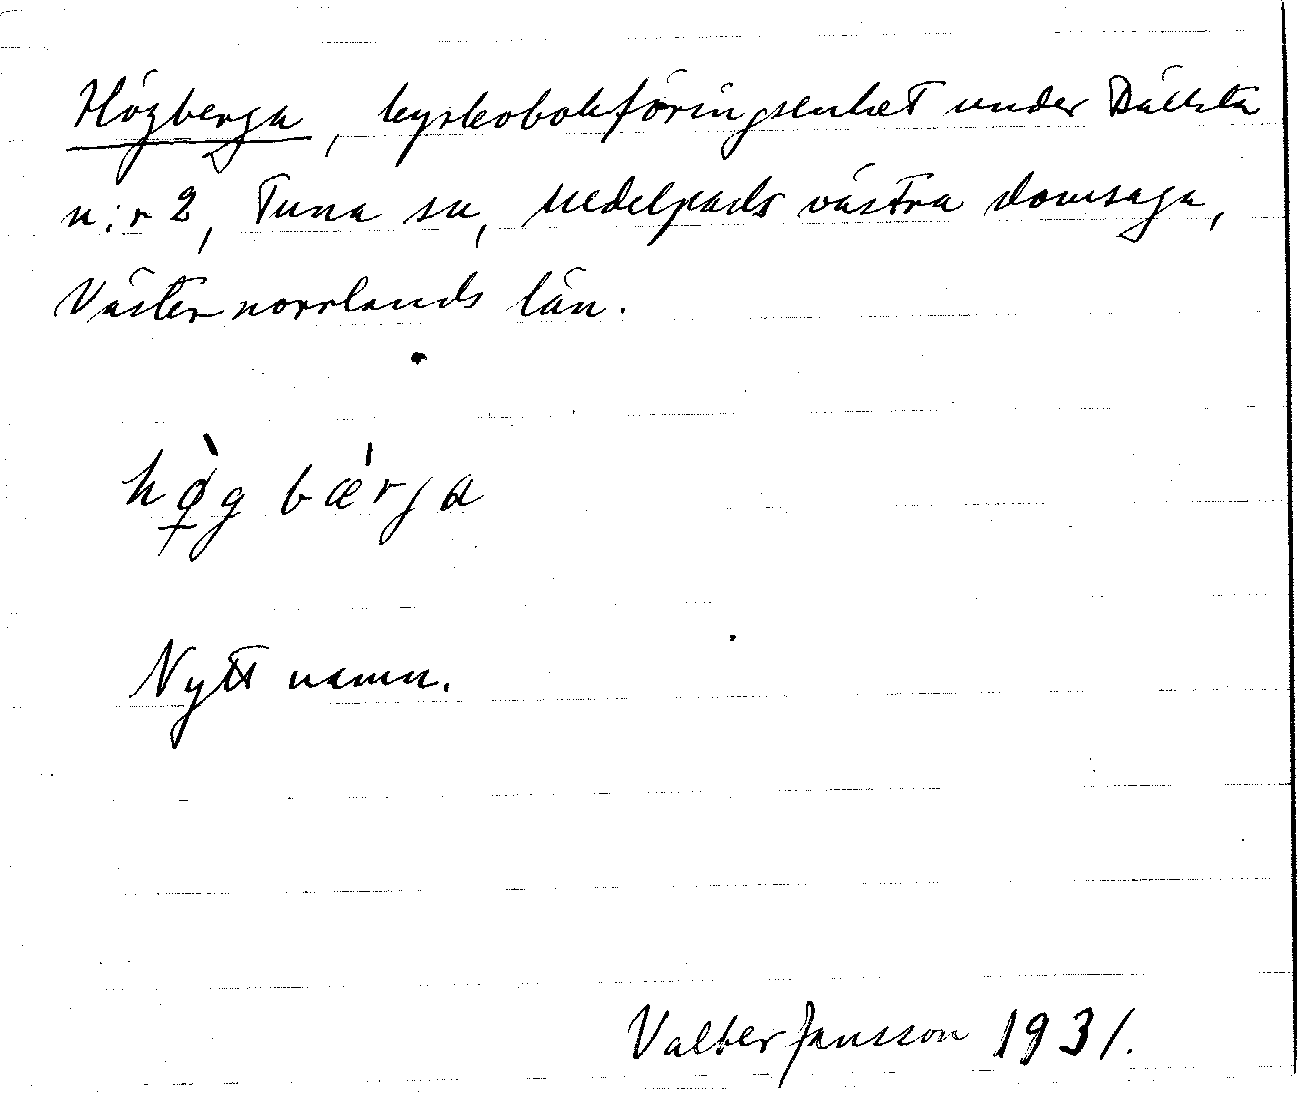 Högberga, kyrkobokföringsenhet under Dällsta
n:r 2, Tuna sn, Medelpads västra domsaga,
Västernorrlands län.
hø̀g bæ̍rja
Nytt namn.
Valter Jansson 1931.